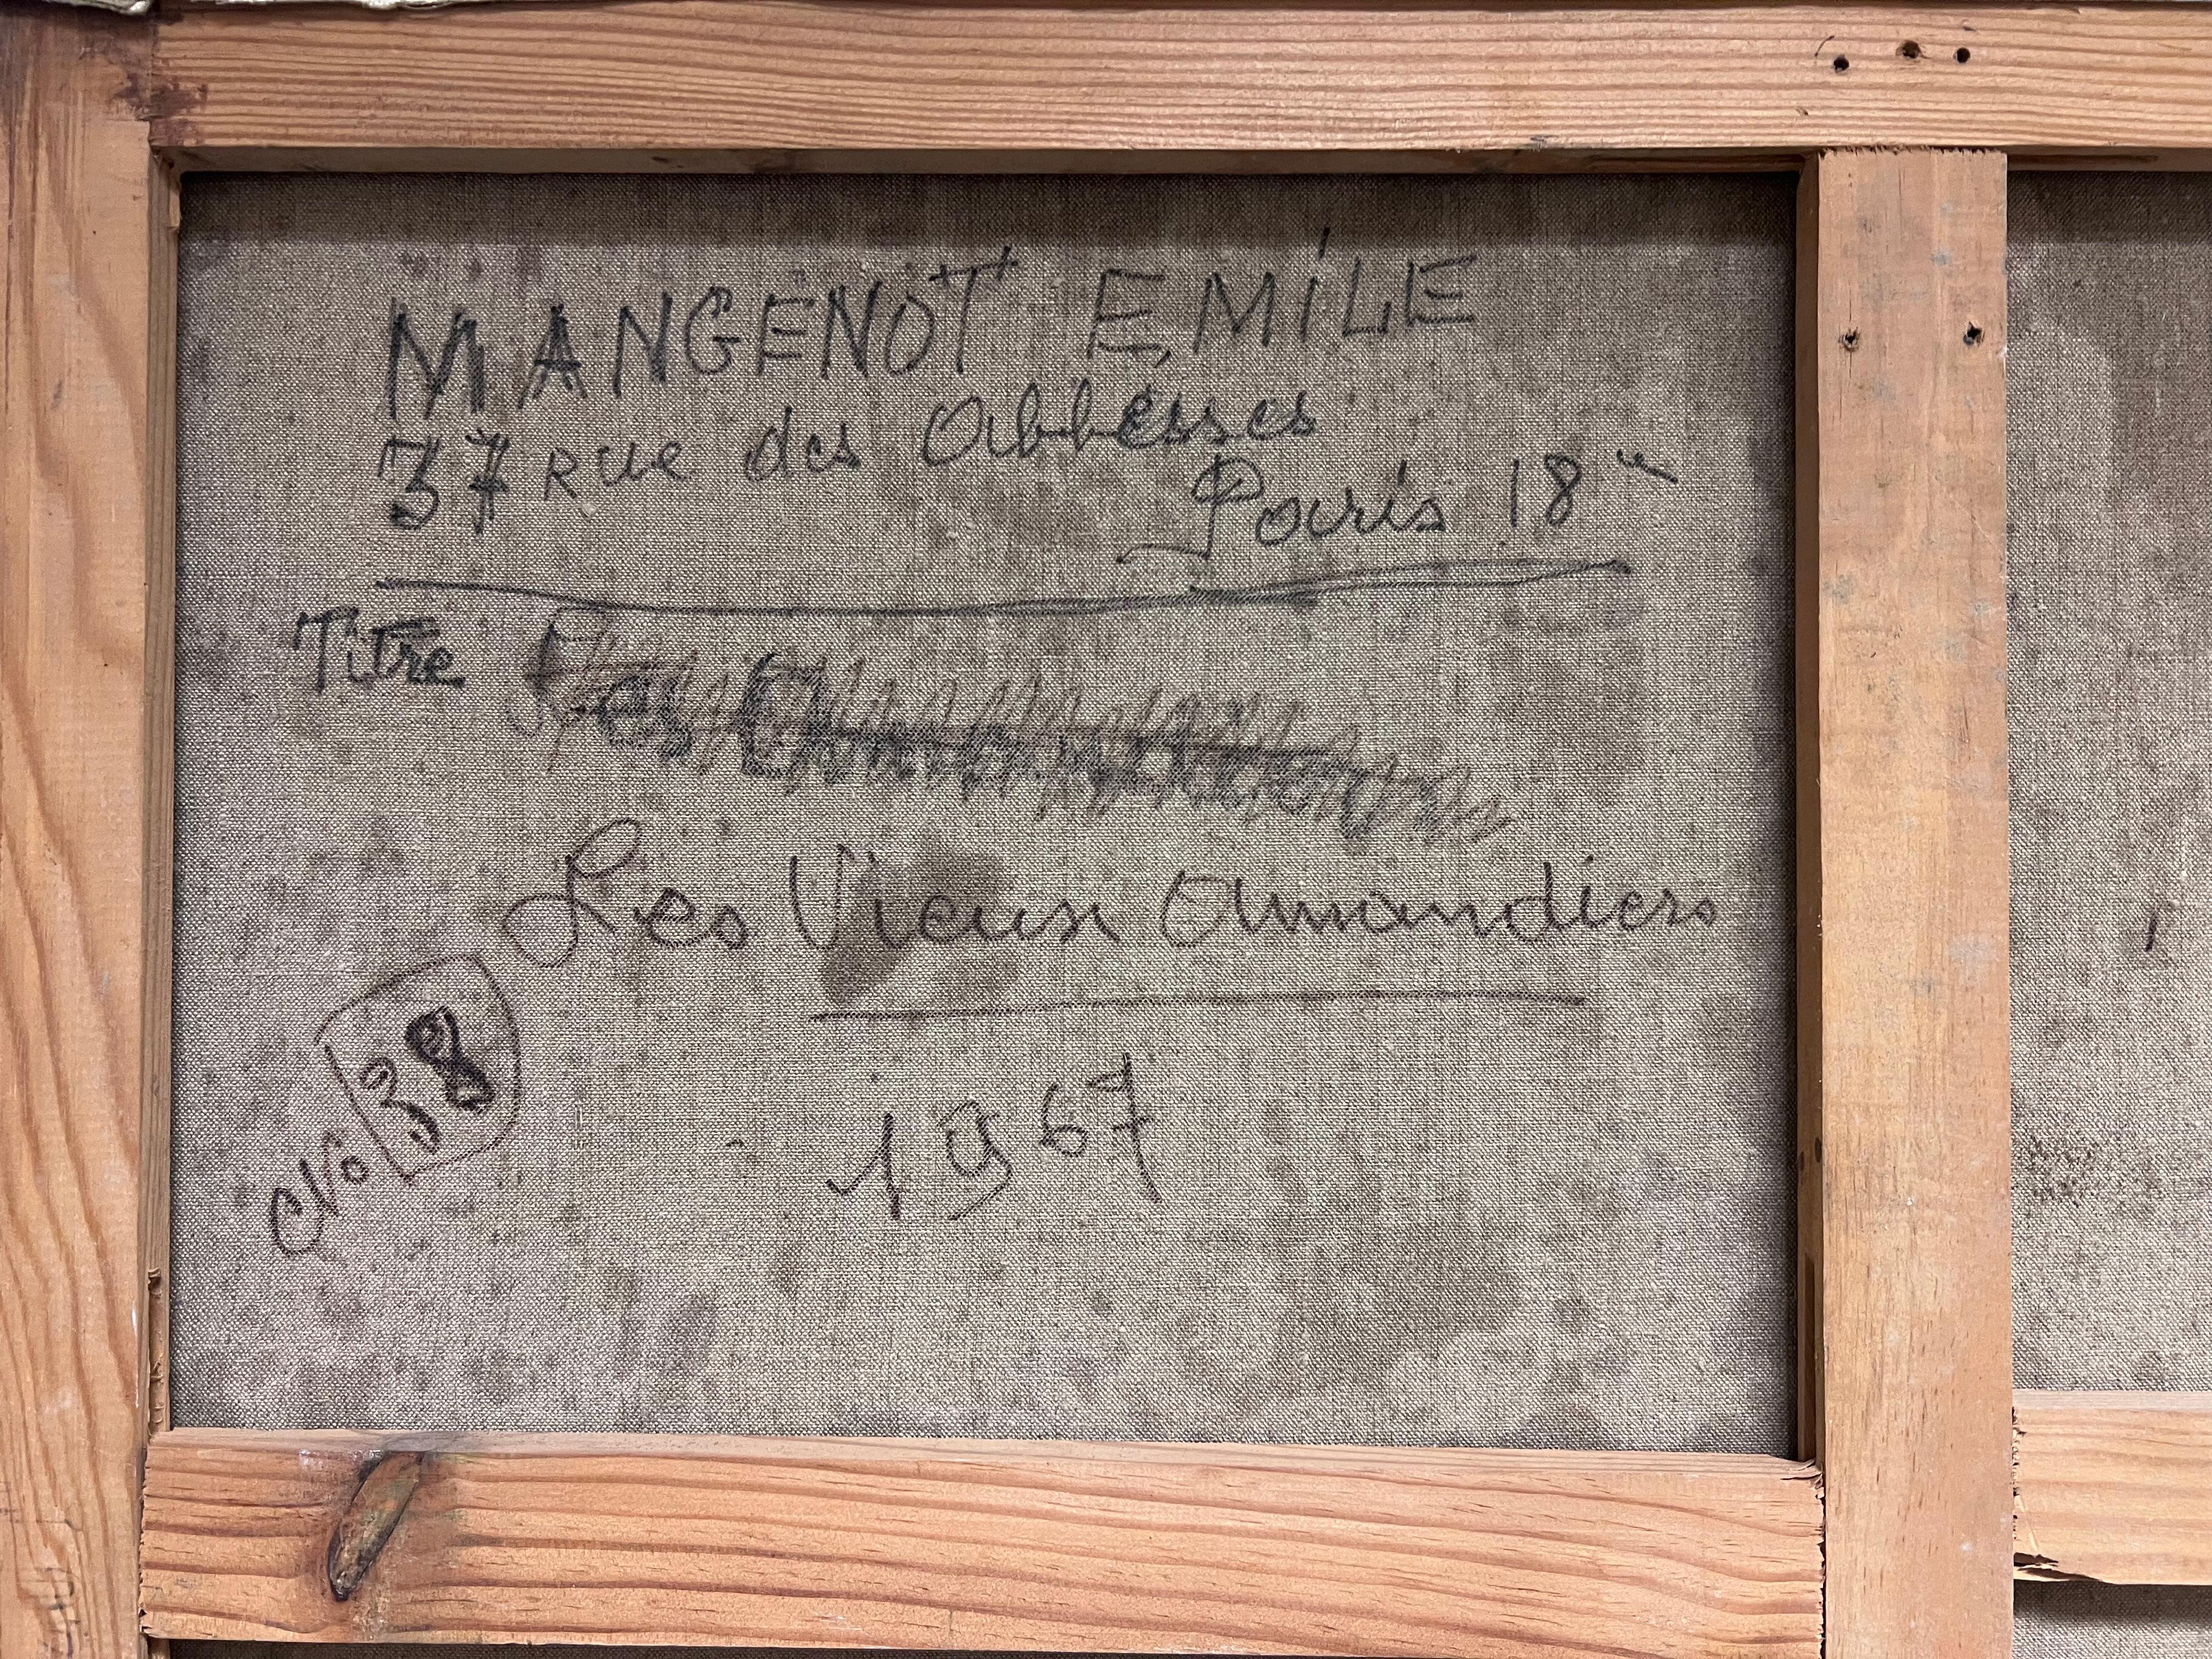 MANGENOT EMILE
37 Rue des Abbesses
Paris 18e
Titre Les
Les Vieux Amandiers
No 38
1967